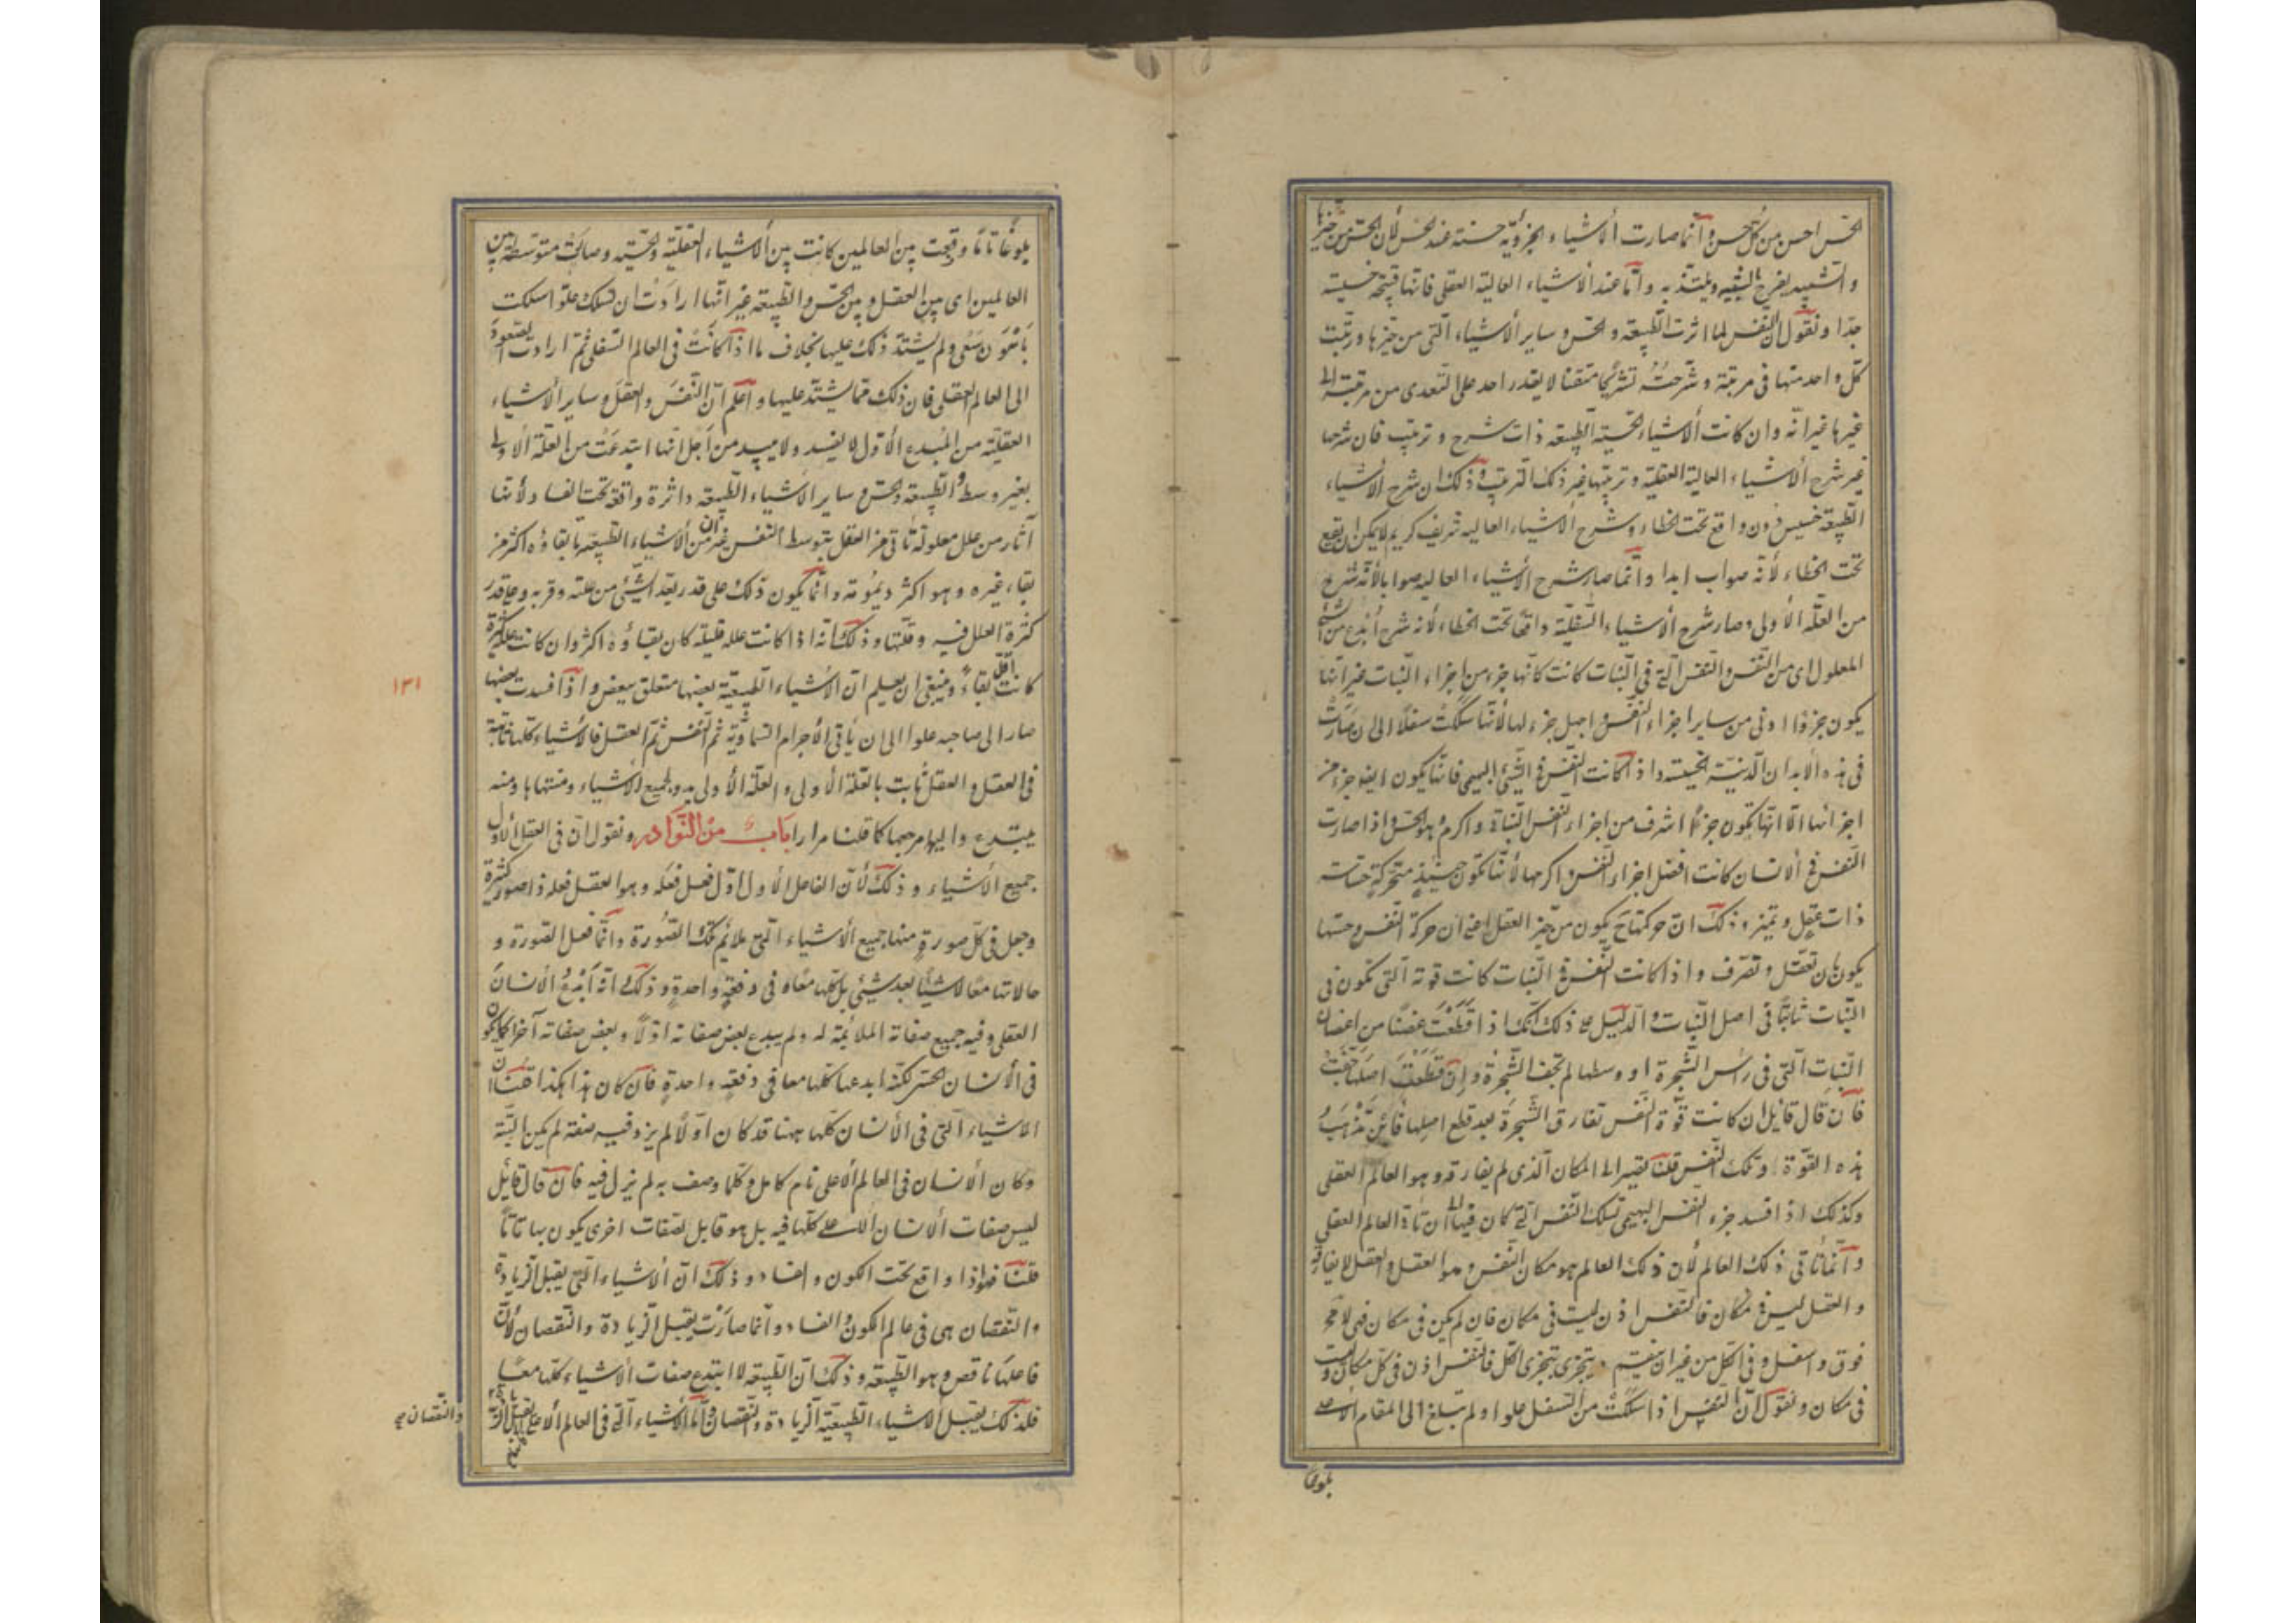 الحس احسن من كل حسن وانما صارت الأشياء الجزوية حسنة عند الحس لأن الحس من حيزها
والشبيه يفرح بالشبيه ويلتذ به وانما عند الأشياء العالية العقلى فانها قبيحة خسيسة
جدا ونقول ان النفس لما اثرت الطبيعة والحس وساير الأشياء التى من حيزها ورتبت
كل واحد منها فى مرتبة وشرحت تشريحا متقنا لا يقدر احد على التعدى من مرتبته الى
غيرها غير انه وان كانت الأشياء الحسية الطبيعة ذات شرح وترتيب فان شرحها
غير شرح الأشياء العالية العقلية وترتيبها غير ذلك الترتيب وذلك ان شرح الأشياء
الطبيعة خسيس دون واقع تحت الخطاء وشرح الأشياء العاليه شريف كريم لا يمكن ان يقع
تحت الخطاء لأنه صواب ابدا وانما صار شرح الأشياء العاليه صوابا لأنه شرح
من العلة الأولى وصار شرح الأشياء السفلية واقعا تحت الخطاء لأنه شرح أبدع من الشئ
المعلول اى من النفس والنفس التى فى النبات كانت كأنها جزء من اجزاء النبات غير انها
يكون جزؤا ادنى من ساير اجزاء النفس واجهل جزء لها لأنها سلكت سفلا الى ان صارت
فى هذه الأبدان الدنية الخسيسة واذا كانت النفس فى الشئ البهيمى فانها يكون ايضا جزء من
اجزائها الا انها تكون جزءا اشرف من اجزاء النفس النباتية واكرم وهو الحس واذا صارت
النفس فى الانسان كانت افضل اجزاء النفس واكرمها لأنها تكون حينئذ متحركة حساسة
ذات عقل وتميز وذلك ان حركتها ح يكون من حيز العقل اعنى ان حركة النفس وحسها
يكون بان تعقل وتعرف واذا كانت النفس فى النبات كانت قوته التى تكون فى
النبات ثابتا فى اصل النبات والدليل على ذلك انك اذا قطعت غصنا من اغصان
النبات التى فى رأس الشجرة او وسطها لم تجف الشجرة وان قطعت اصلها جفت
فان قال قايل ان كانت قوة النفس تفارق الشجرة بعد قطع اصلها فاين تذهب
هذه القوة او تلك النفس قلنا تصير الى المكان الذى لم يفارقه وهو العالم العقلى
وكذلك اذا فسد جزء النفس البهيمى تسلك النفس التى كان فيها الى ان تأتى العالم العقلى
وانما تأتى ذلك العالم لأن ذلك العالم هو مكان النفس وهو العقل والعقل لا يفارقه
والعقل ليس فى مكان فالنفس اذن ليست فى مكان فان لم يكن فى مكان فهى لا محة
فوق واسفل وفى الكل من غير ان تنقسم وتتجزى بتجزى الكل فالنفس اذن فى كل مكان وليست
فى مكان ونقول ان النفس اذا سلكت من السفل علوا ولم تبلغ الى المقام الأعلى
بلوغا
بلوغا تاما وقعت بين العالمين كانت بين الأشياء العقلية والحسيه وصارت متوسطة بين
العالمين اى بين العقل وبين الحس والطبيعة غير انها اذا ارادت ان تسلك علوا سلكت
بأهون سعى ولم يشتد ذلك عليها بخلاف ما اذا كانت فى العالم السفلى ثم ارادت الصعود
الى العالم العقلى فان ذلك مما يشتد عليها واعلم ان النفس والعقل وساير الأشياء
العقلية من المبدع الأول لا يفسد ولا يبيد من اجل انها ابتدعت من العلة الأولى
بغير وسط والطبيعة والحس وساير الأشياء الطبيعة داثرة واقعة تحت الفساد لأنها
آثار من علل معلولة تأتى من العقل بتوسط النفس غير ان من الأشياء الطبيعة ما بقاؤه اكثر من
بقاء غيره وهو اكثر ديمومة وانما يكون ذلك على قدر بعد الشئ من علته وقربه وعلى قدر
كثرة العلل فيه وقلتها وذلك انه اذا كانت علله قليلة كان بقاؤه اكثر وان كانت علله كثيرة
كانت اقل بقاء وينبغى ان يعلم ان الأشياء الطبيعية بعضها متعلق ببعض واذا فسدت بعضها
صار الى صاحبه علوا الى ان يأتى الأجرام السماوية ثم النفس ثم العقل فالأشياء كلها ثابتة
فى العقل والعقل ثابت بالعلة الأولى والعلة الأولى بدو لجميع الأشياء ومنتهاها ومنه
يبتدع واليها مرجعها كما قلنا مرارا باب من النوادر ونقول ان فى العقل الأول
جميع الأشياء وذلك لأن الفاعل الأول اول فعل فعله وهو العقل فعله ذا صور كثيرة
وجعل فى كل صورة منها جميع الأشياء التى يلائم تلك الصورة وانما فعل الصورة و
حالاتها معا لا شيئا بعد شئ بل كلها معا فى دفعة واحدة وذلك انه ابدع الانسان
العقلى وفيه جميع صفاته الملائمة له ولم يبدع بعض صفاته اولا وبعض صفاته آخرا كما يكون
فى الأنسان الحسى لكنه ابدعها كلها معا فى دفعة واحدة فان كان هذا هكذا قلنا ان
الأشياء التى فى الأنسان كلها ههنا قد كان اولا لم يزد فيه صفة لم يكن البتة
وكان الأنسان فى العالم الأعلى تام كامل وكلما وصف به لم يزل فيه فان قال قايل
ليس صفات الأنسان الأعلى كلها فيه بل هو قابل لصفات اخرى يكون بها تاما
قلنا فهو اذا واقع تحت الكون والفساد وذلك ان الأشياء التى يقبل الزيادة
والنقصان هى فى عالم الكون والفساد وانما صارت يقبل الزيادة والنقصان لأن
فاعلها ناقص وهو الطبيعة وذلك ان الطبيعة لا ابتدع صفات الأشياء كلها معا
فلذلك يقبل الأشياء الطبيعية الزيادة والنقصان واما الأشياء التى فى العالم الأعلى
والنقصان
١٣١